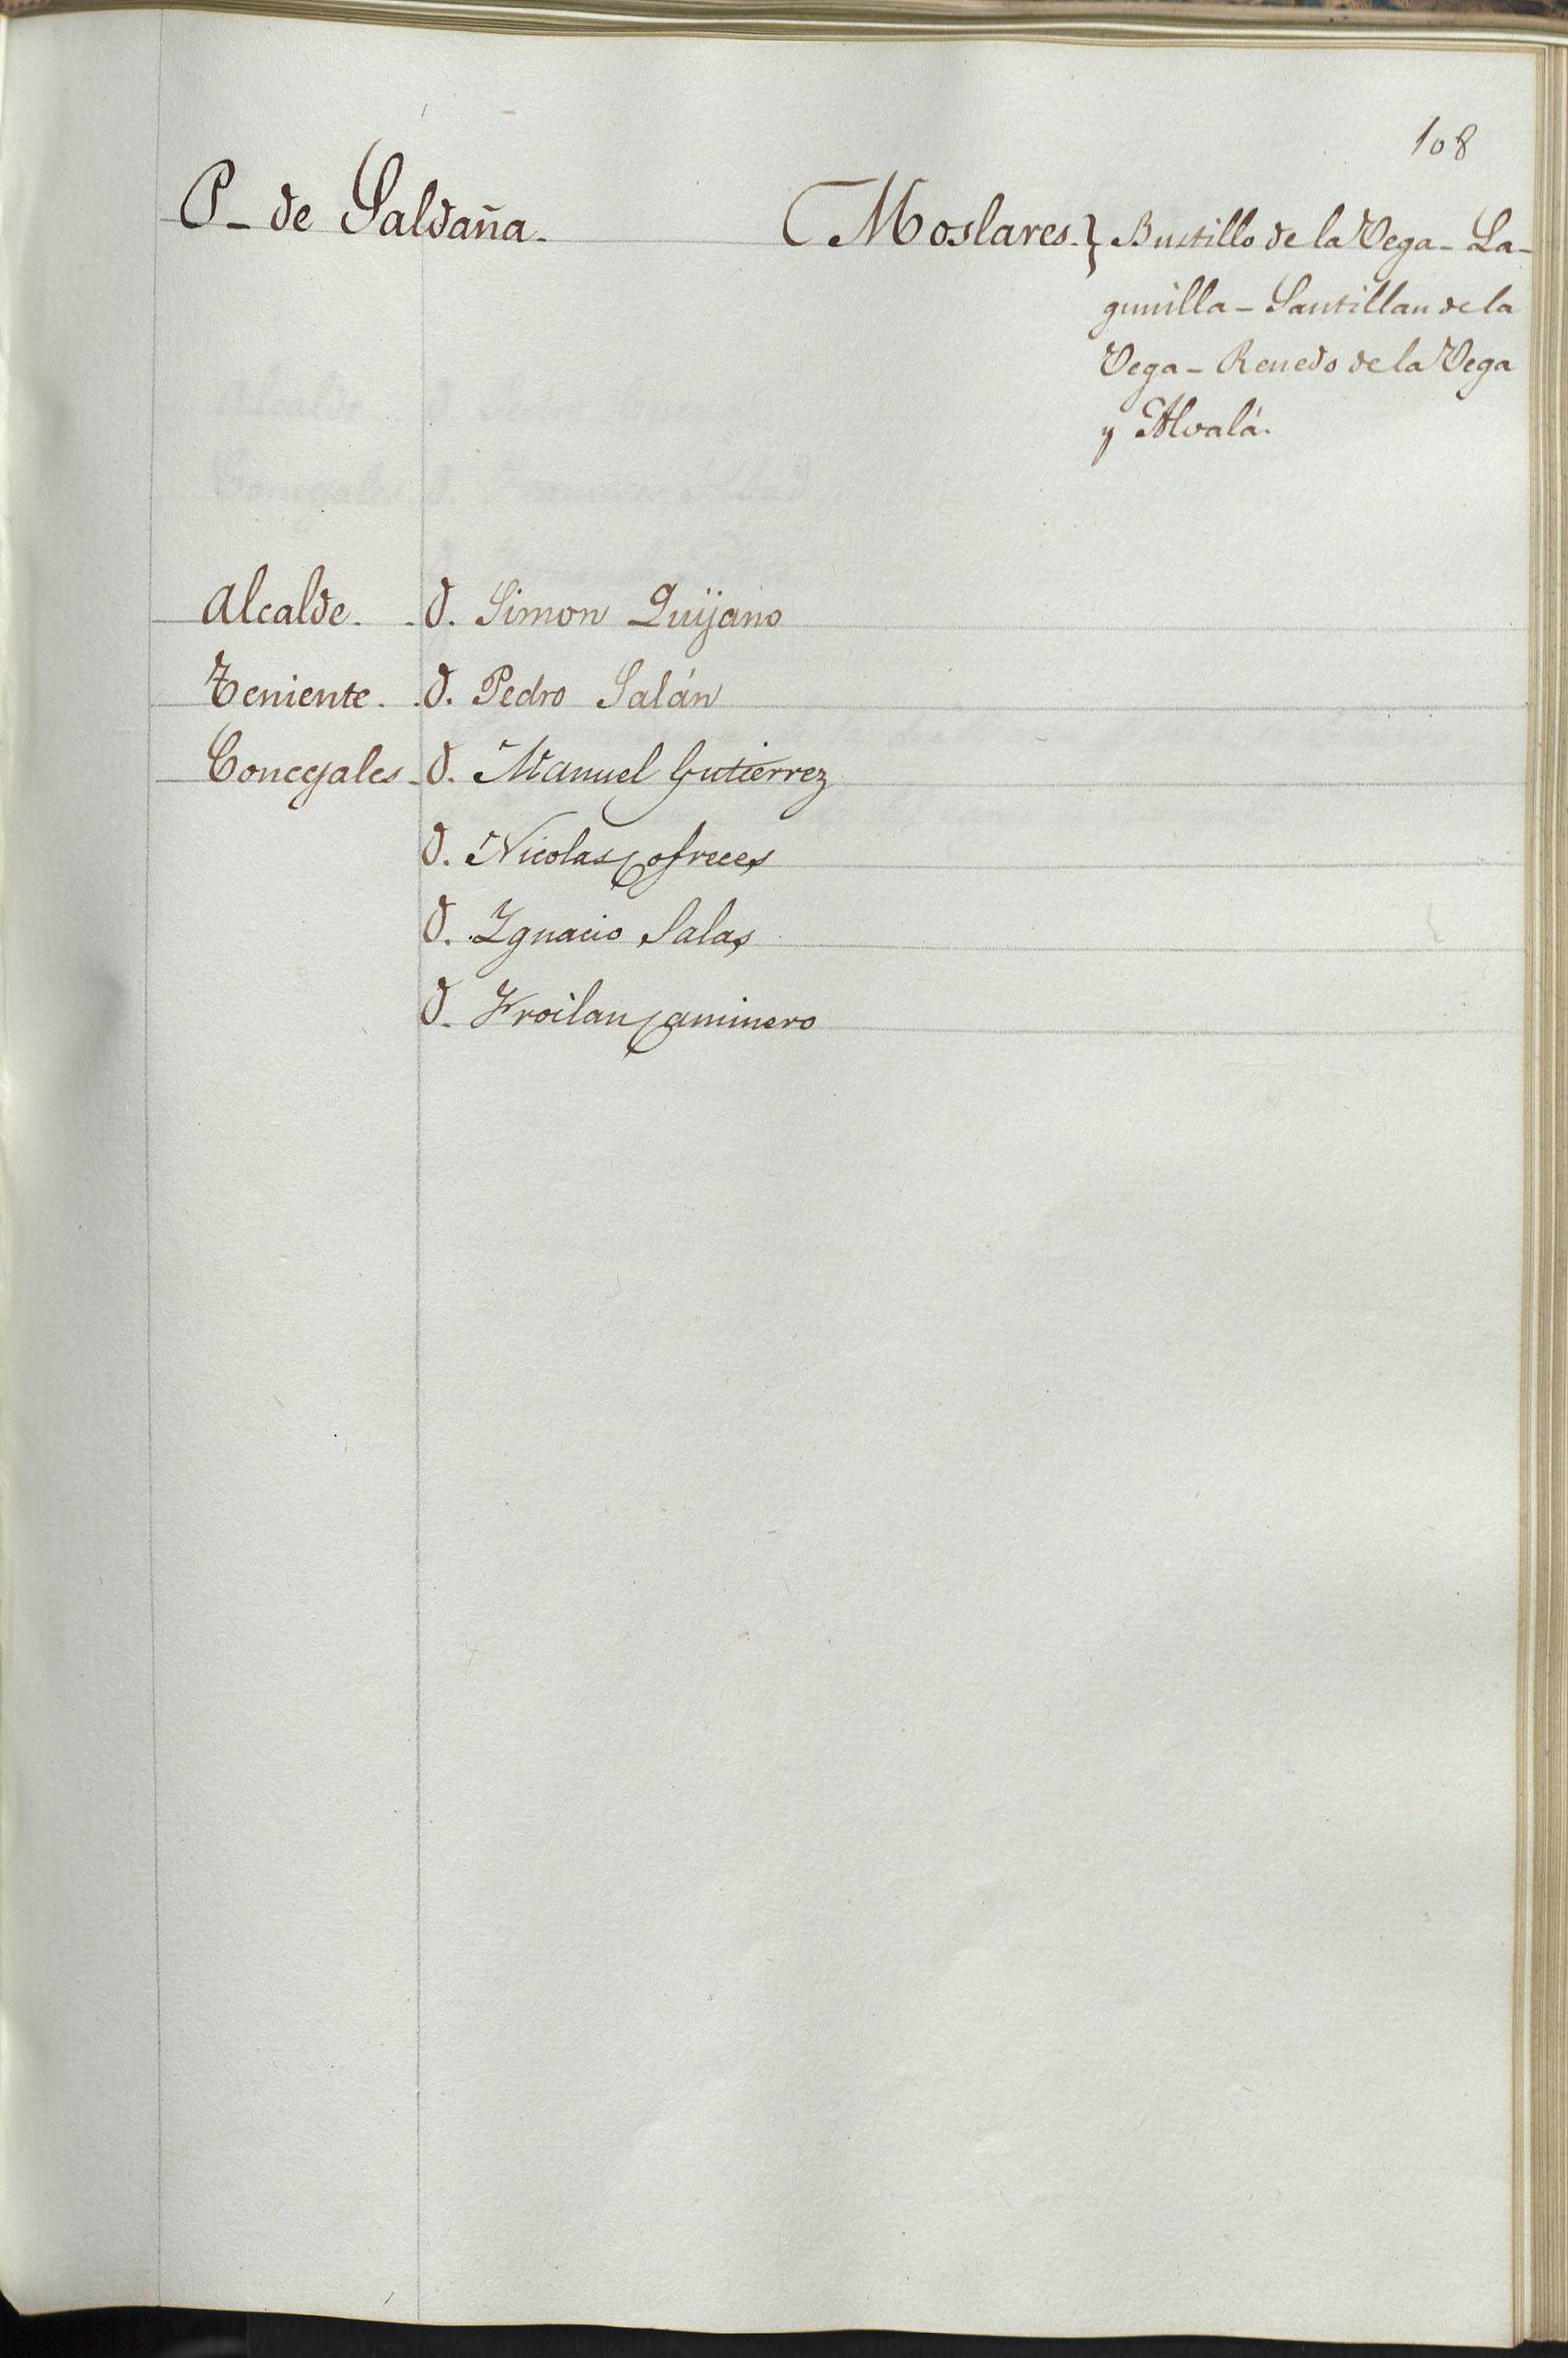 108
P- de Saldaña. Moslares. } Bustillo de la Vega - La-
gunilla - Santillan de la
Vega - Renedo de la Vega
y Alvalá.
Alcalde. D. Simon Quijano
Teniente. D. Pedro Salán
Concegales D. Manuel Gutierrez
D. Nicolas Cofreces
D. Ygnacio Salas
D. Froilan Caminero